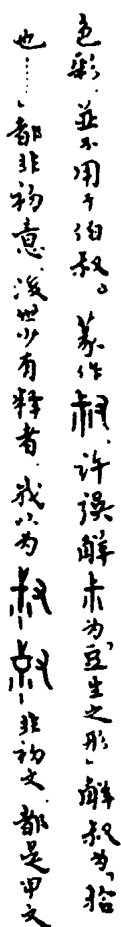 色彩，並不用于伯叔。篆作叔，许误解尗为「豆生之形」，解叔为「拾
也……」都非初意，後世少有释者。我以为叔、非初文，都是甲文